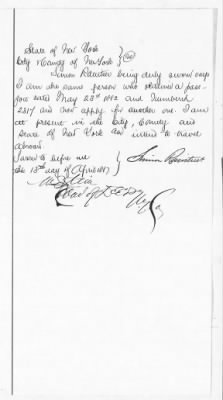 State of New York
City & County of New York } ss
Simon Rawitser being duly sworn says
I am the same person who obtained a pass-
port dated May 23rd 1892 and Numbered
2317 and now apply for another one. I am
at present in the City, County and
State of New York and intend to travel
abroad.
Sworn to before me
the 13th day of April 1897 } Simon Rawitser